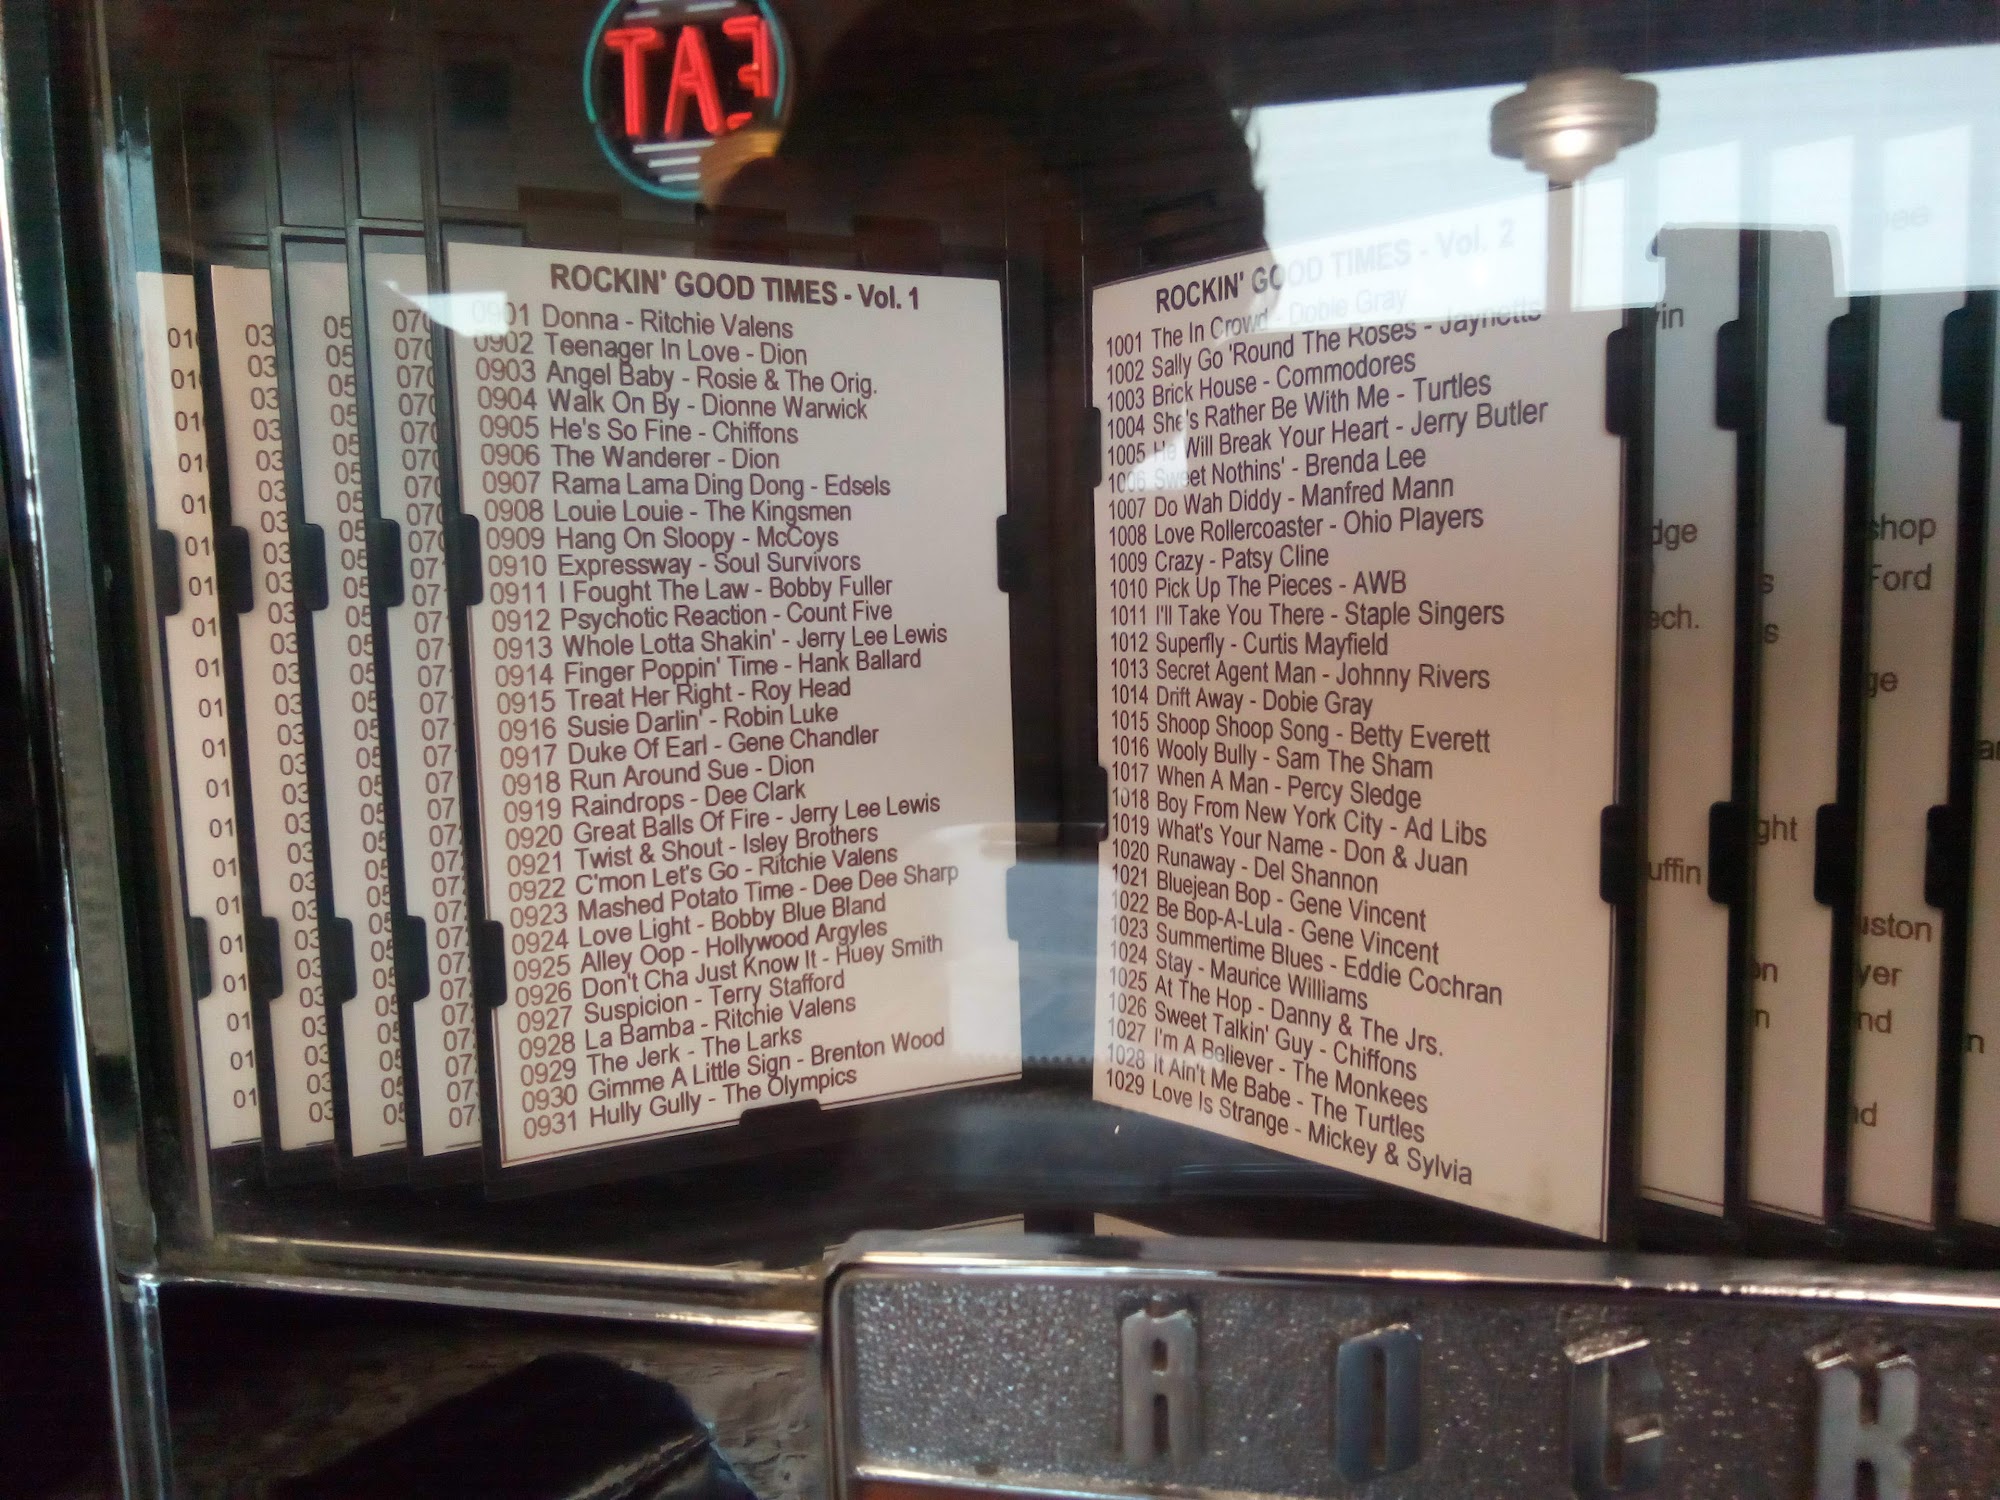 EAT
ROCKIN' GOOD TIMES - Vol. 1
0901 Donna - Ritchie Valens
0902 Teenager In Love - Dion
0903 Angel Baby - Rosie & The Orig.
0904 Walk On By - Dionne Warwick
0905 He's So Fine - Chiffons
0906 The Wanderer - Dion
0907 Rama Lama Ding Dong - Edsels
0908 Louie Louie - The Kingsmen
0909 Hang On Sloopy - McCoys
0910 Expressway - Soul Survivors
0911 I Fought The Law - Bobby Fuller
0912 Psychotic Reaction - Count Five
0913 Whole Lotta Shakin' - Jerry Lee Lewis
0914 Finger Poppin' Time - Hank Ballard
0915 Treat Her Right - Roy Head
0916 Susie Darlin' - Robin Luke
0917 Duke Of Earl - Gene Chandler
0918 Run Around Sue - Dion
0919 Raindrops - Dee Clark
0920 Great Balls Of Fire - Jerry Lee Lewis
0921 Twist & Shout - Isley Brothers
0922 C'mon Let's Go - Ritchie Valens
0923 Mashed Potato Time - Dee Dee Sharp
0924 Love Light - Bobby Blue Bland
0925 Alley Oop - Hollywood Argyles
0926 Don't Cha Just Know It - Huey Smith
0927 Suspicion - Terry Stafford
0928 La Bamba - Ritchie Valens
0929 The Jerk - The Larks
0930 Gimme A Little Sign - Brenton Wood
0931 Hully Gully - The Olympics
ROCKIN' GOOD TIMES - Vol. 2
1001 The In Crowd - Dobie Gray
1002 Sally Go 'Round The Roses - Jaynetts
1003 Brick House - Commodores
1004 She's Rather Be With Me - Turtles
1005 He Will Break Your Heart - Jerry Butler
1006 Sweet Nothins' - Brenda Lee
1007 Do Wah Diddy - Manfred Mann
1008 Love Rollercoaster - Ohio Players
1009 Crazy - Patsy Cline
1010 Pick Up The Pieces - AWB
1011 I'll Take You There - Staple Singers
1012 Superfly - Curtis Mayfield
1013 Secret Agent Man - Johnny Rivers
1014 Drift Away - Dobie Gray
1015 Shoop Shoop Song - Betty Everett
1016 Wooly Bully - Sam The Sham
1017 When A Man - Percy Sledge
1018 Boy From New York City - Ad Libs
1019 What's Your Name - Don & Juan
1020 Runaway - Del Shannon
1021 Bluejean Bop - Gene Vincent
1022 Be Bop-A-Lula - Gene Vincent
1023 Summertime Blues - Eddie Cochran
1024 Stay - Maurice Williams
1025 At The Hop - Danny & The Jrs.
1026 Sweet Talkin' Guy - Chiffons
1027 I'm A Believer - The Monkees
1028 It Ain't Me Babe - The Turtles
1029 Love Is Strange - Mickey & Sylvia
ROCK